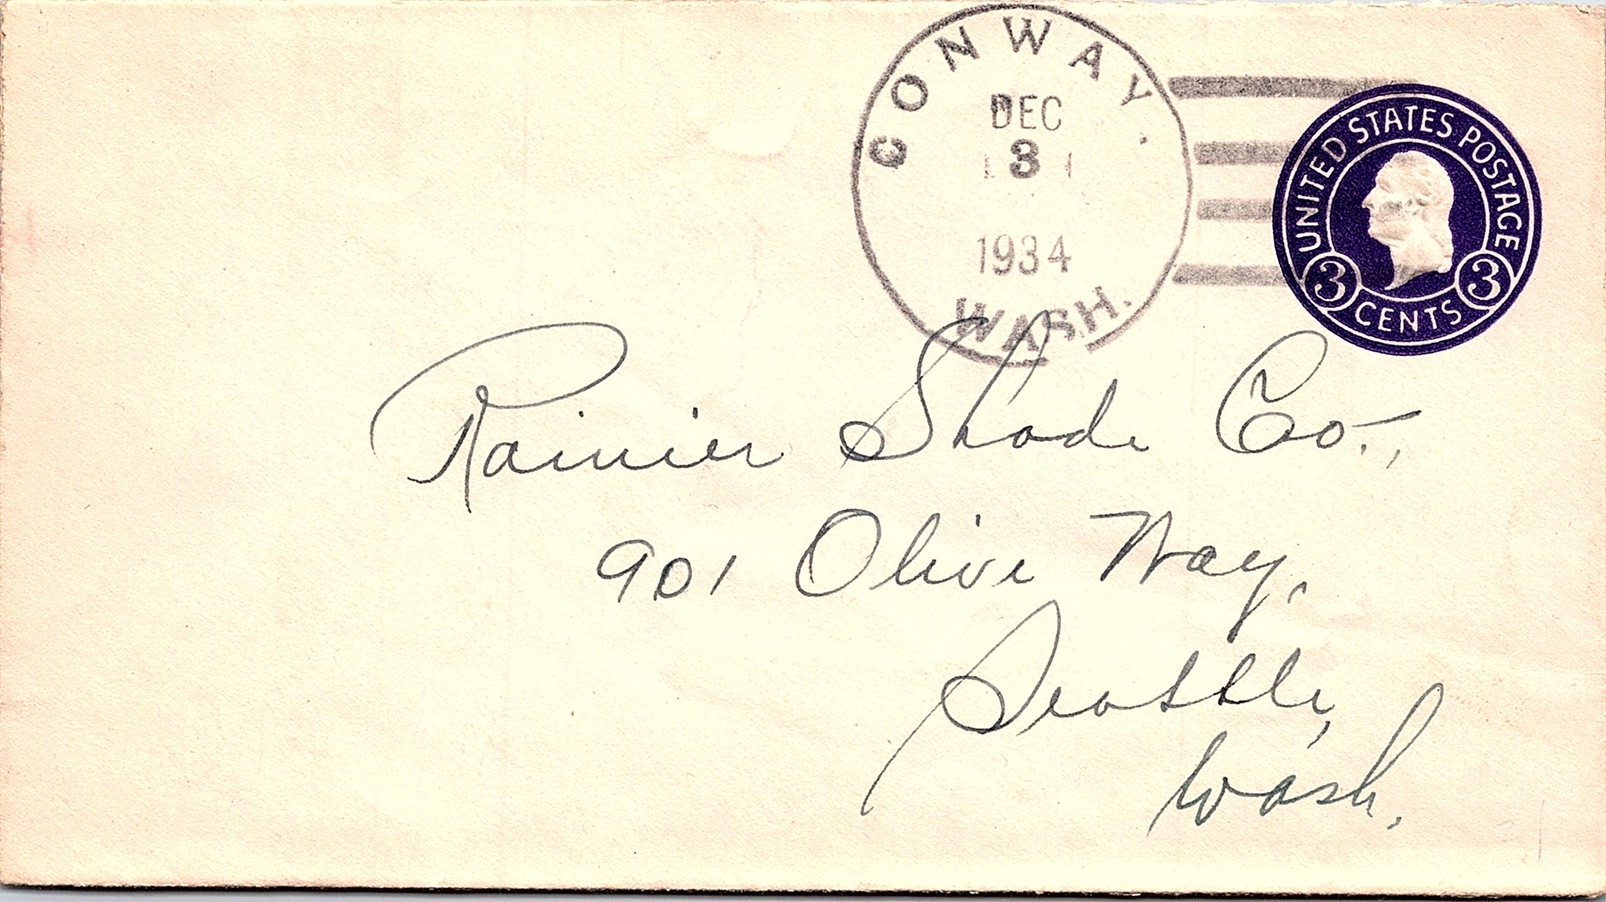 CONWAY.
DEC
3
1934
WASH.
UNITED STATES POSTAGE
3 CENTS 3
Rainier Shade Co.,
901 Olive Way,
Seattle,
Wash.